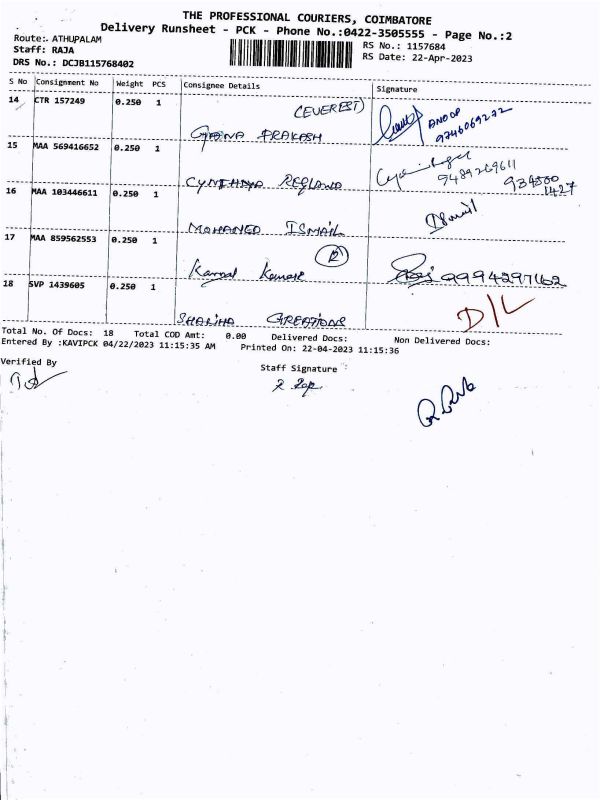 THE PROFESSIONAL COURIERS, COIMBATORE
Delivery Runsheet - PCK - Phone No.:0422-3505555 - Page No.:2
Route:. ATHUPALAM
RS No.: 1157684
Staff: RAJA
RS Date: 22-Apr-2023
DRS No.: DCJB115768402
S No Consignment No Weight PCS Consignee Details Signature
14 CTR 157249 0.250 1 (EVEREST)
PRAKASH ANOOP 9746069272
15 MAA 569416652 0.250 1
CYNTHIYA 9489269611
16 MAA 103446611 0.250 1
MOHAMED ISMAIL Ismail
17 MAA 859562553 0.250 1 (2)
Kamal 9994297162
18 SVP 1439605 0.250 1
CREATIONS D/L
Total No. Of Docs: 18 Total COD Amt: 0.00 Delivered Docs: Non Delivered Docs:
Entered By :KAVIPCK 04/22/2023 11:15:35 AM Printed On: 22-04-2023 11:15:36
Verified By
Staff Signature :